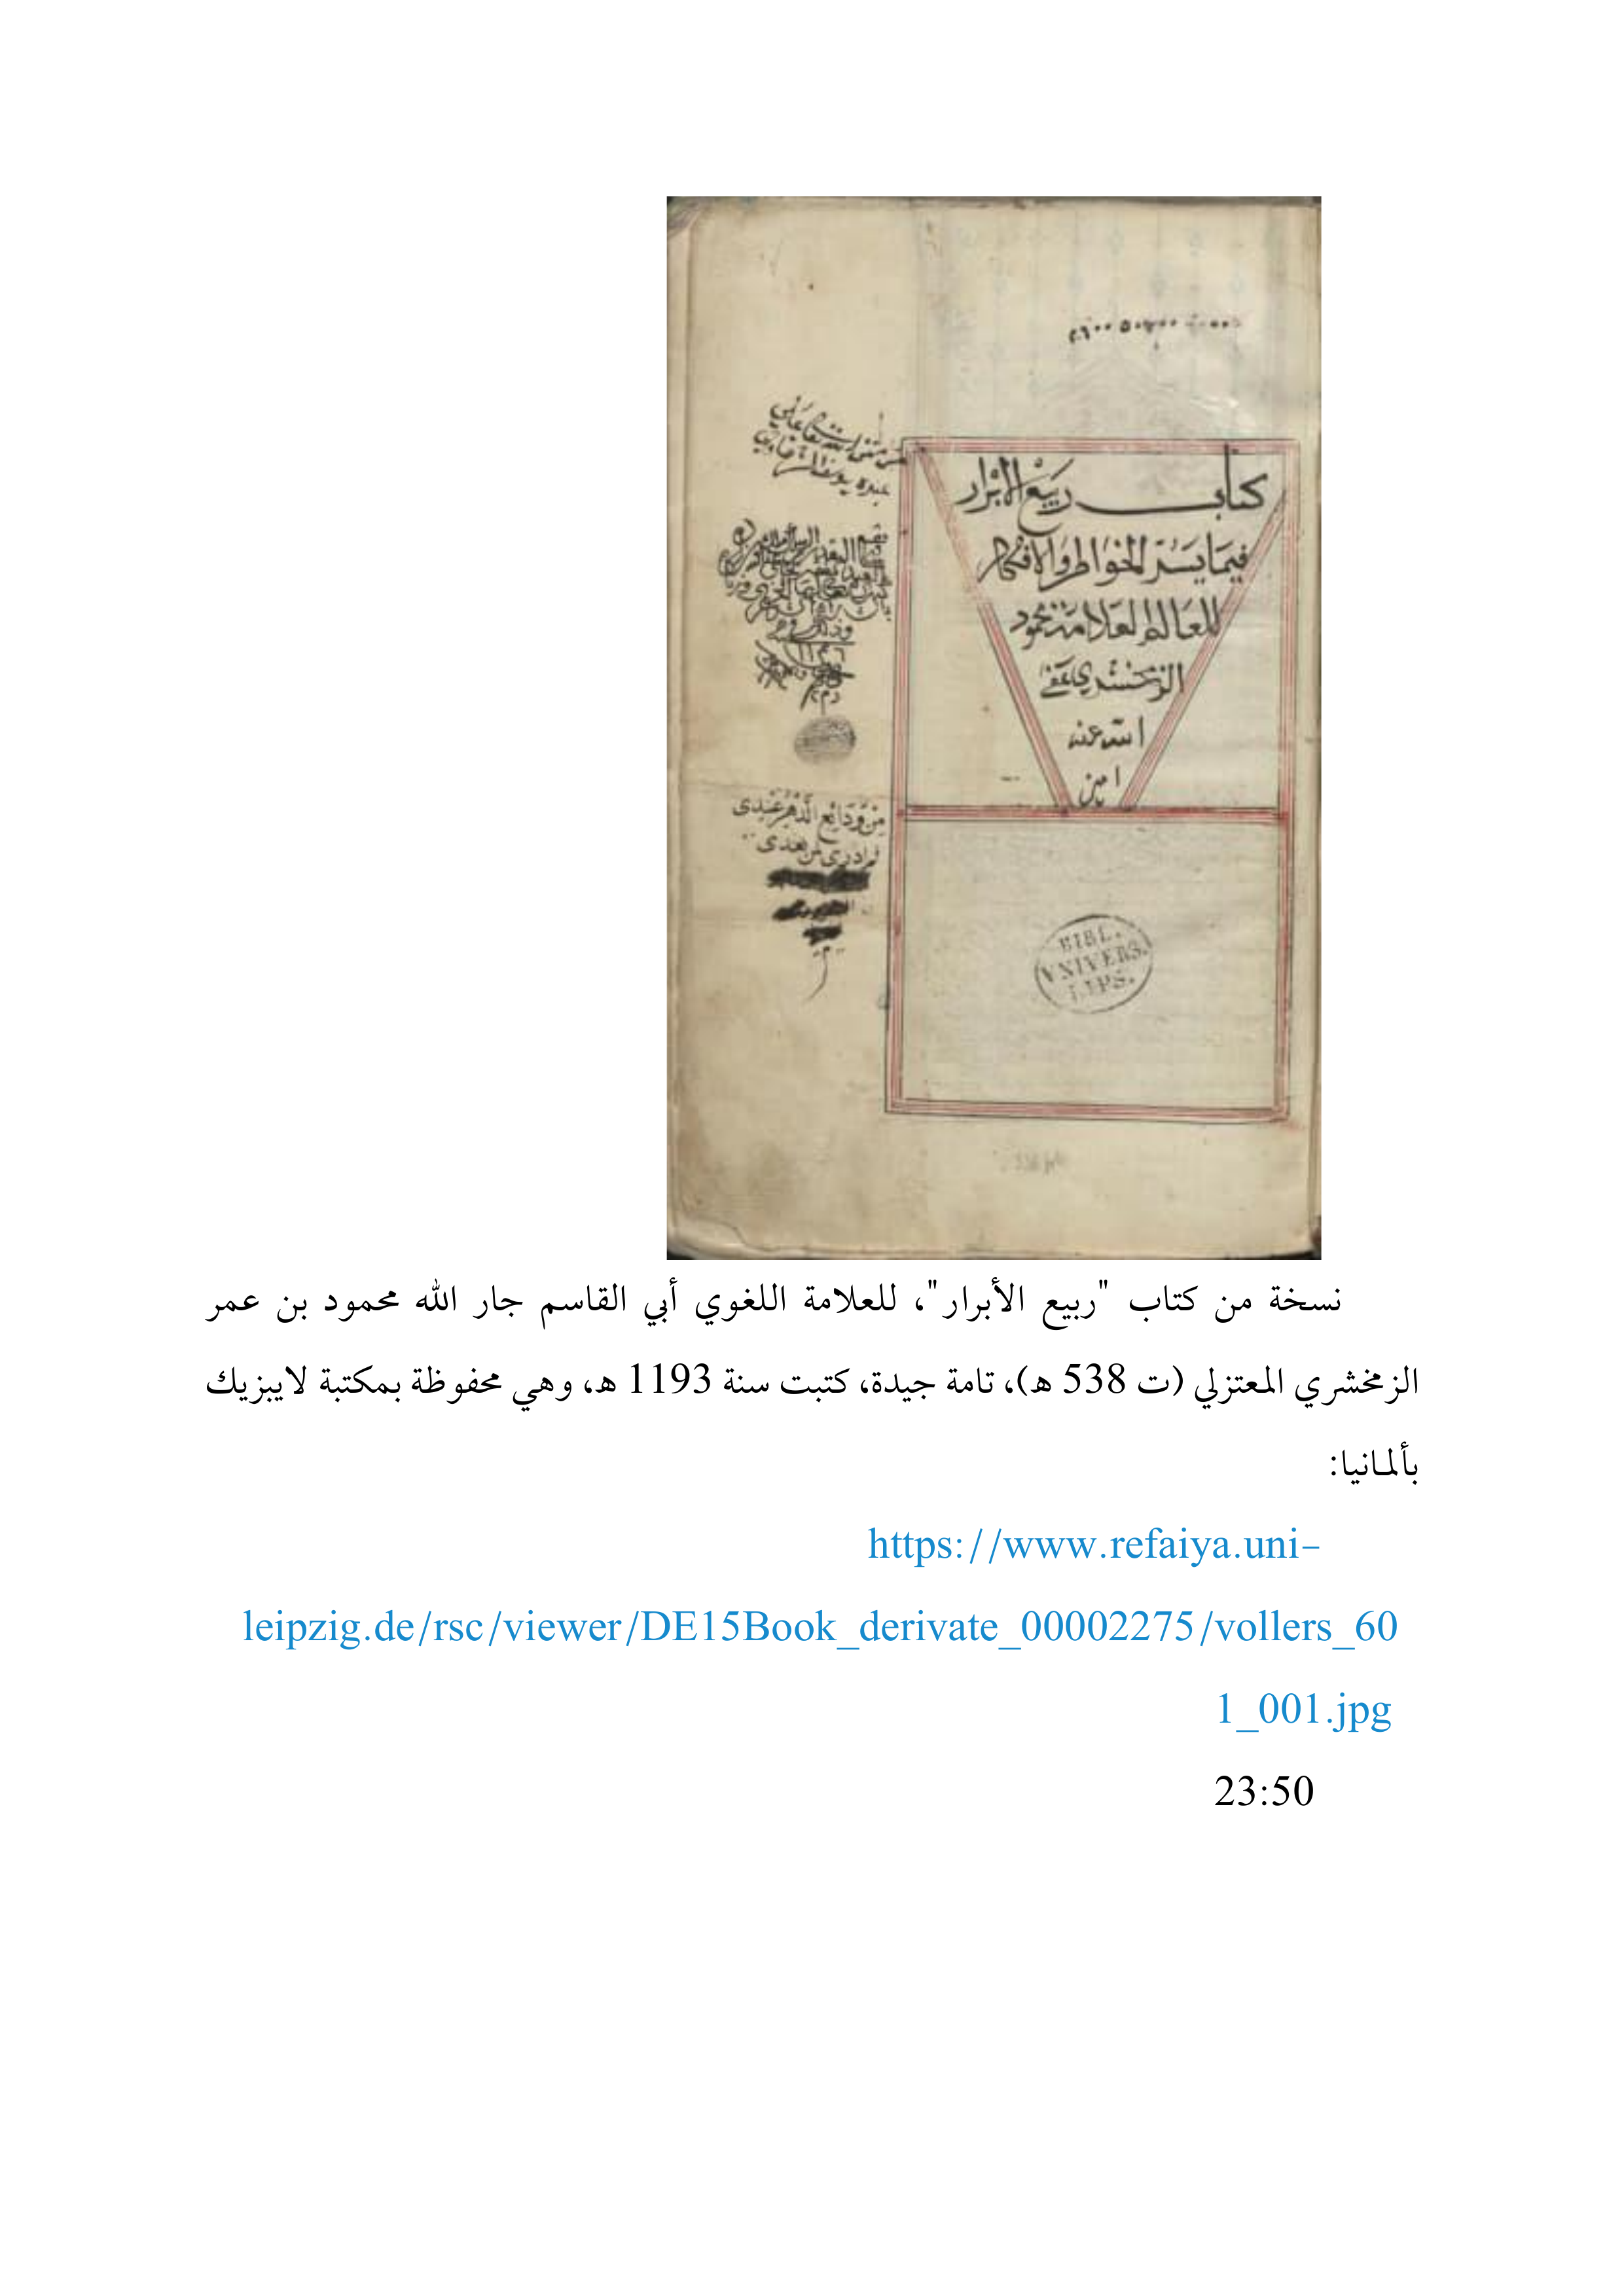 كتاب ربيع الابرار
فيما يسر الخواطر والافكار
للعالم العلامة محمود
الزمخشري عفى
الله عنه
امين
من ودائع الدهر عندى
بعدى
BIBL.
VNIVERS.
LIPS.
نسخة من كتاب "ربيع الأبرار"، للعلامة اللغوي أبي القاسم جار الله محمود بن عمر
الزمخشري المعتزلي (ت 538 هـ)، تامة جيدة، كتبت سنة 1193 هـ، وهي محفوظة بمكتبة لايبزيك
بألمانيا:
https://www.refaiya.uni-
leipzig.de/rsc/viewer/DE15Book_derivate_00002275/vollers_60
1_001.jpg
23:50